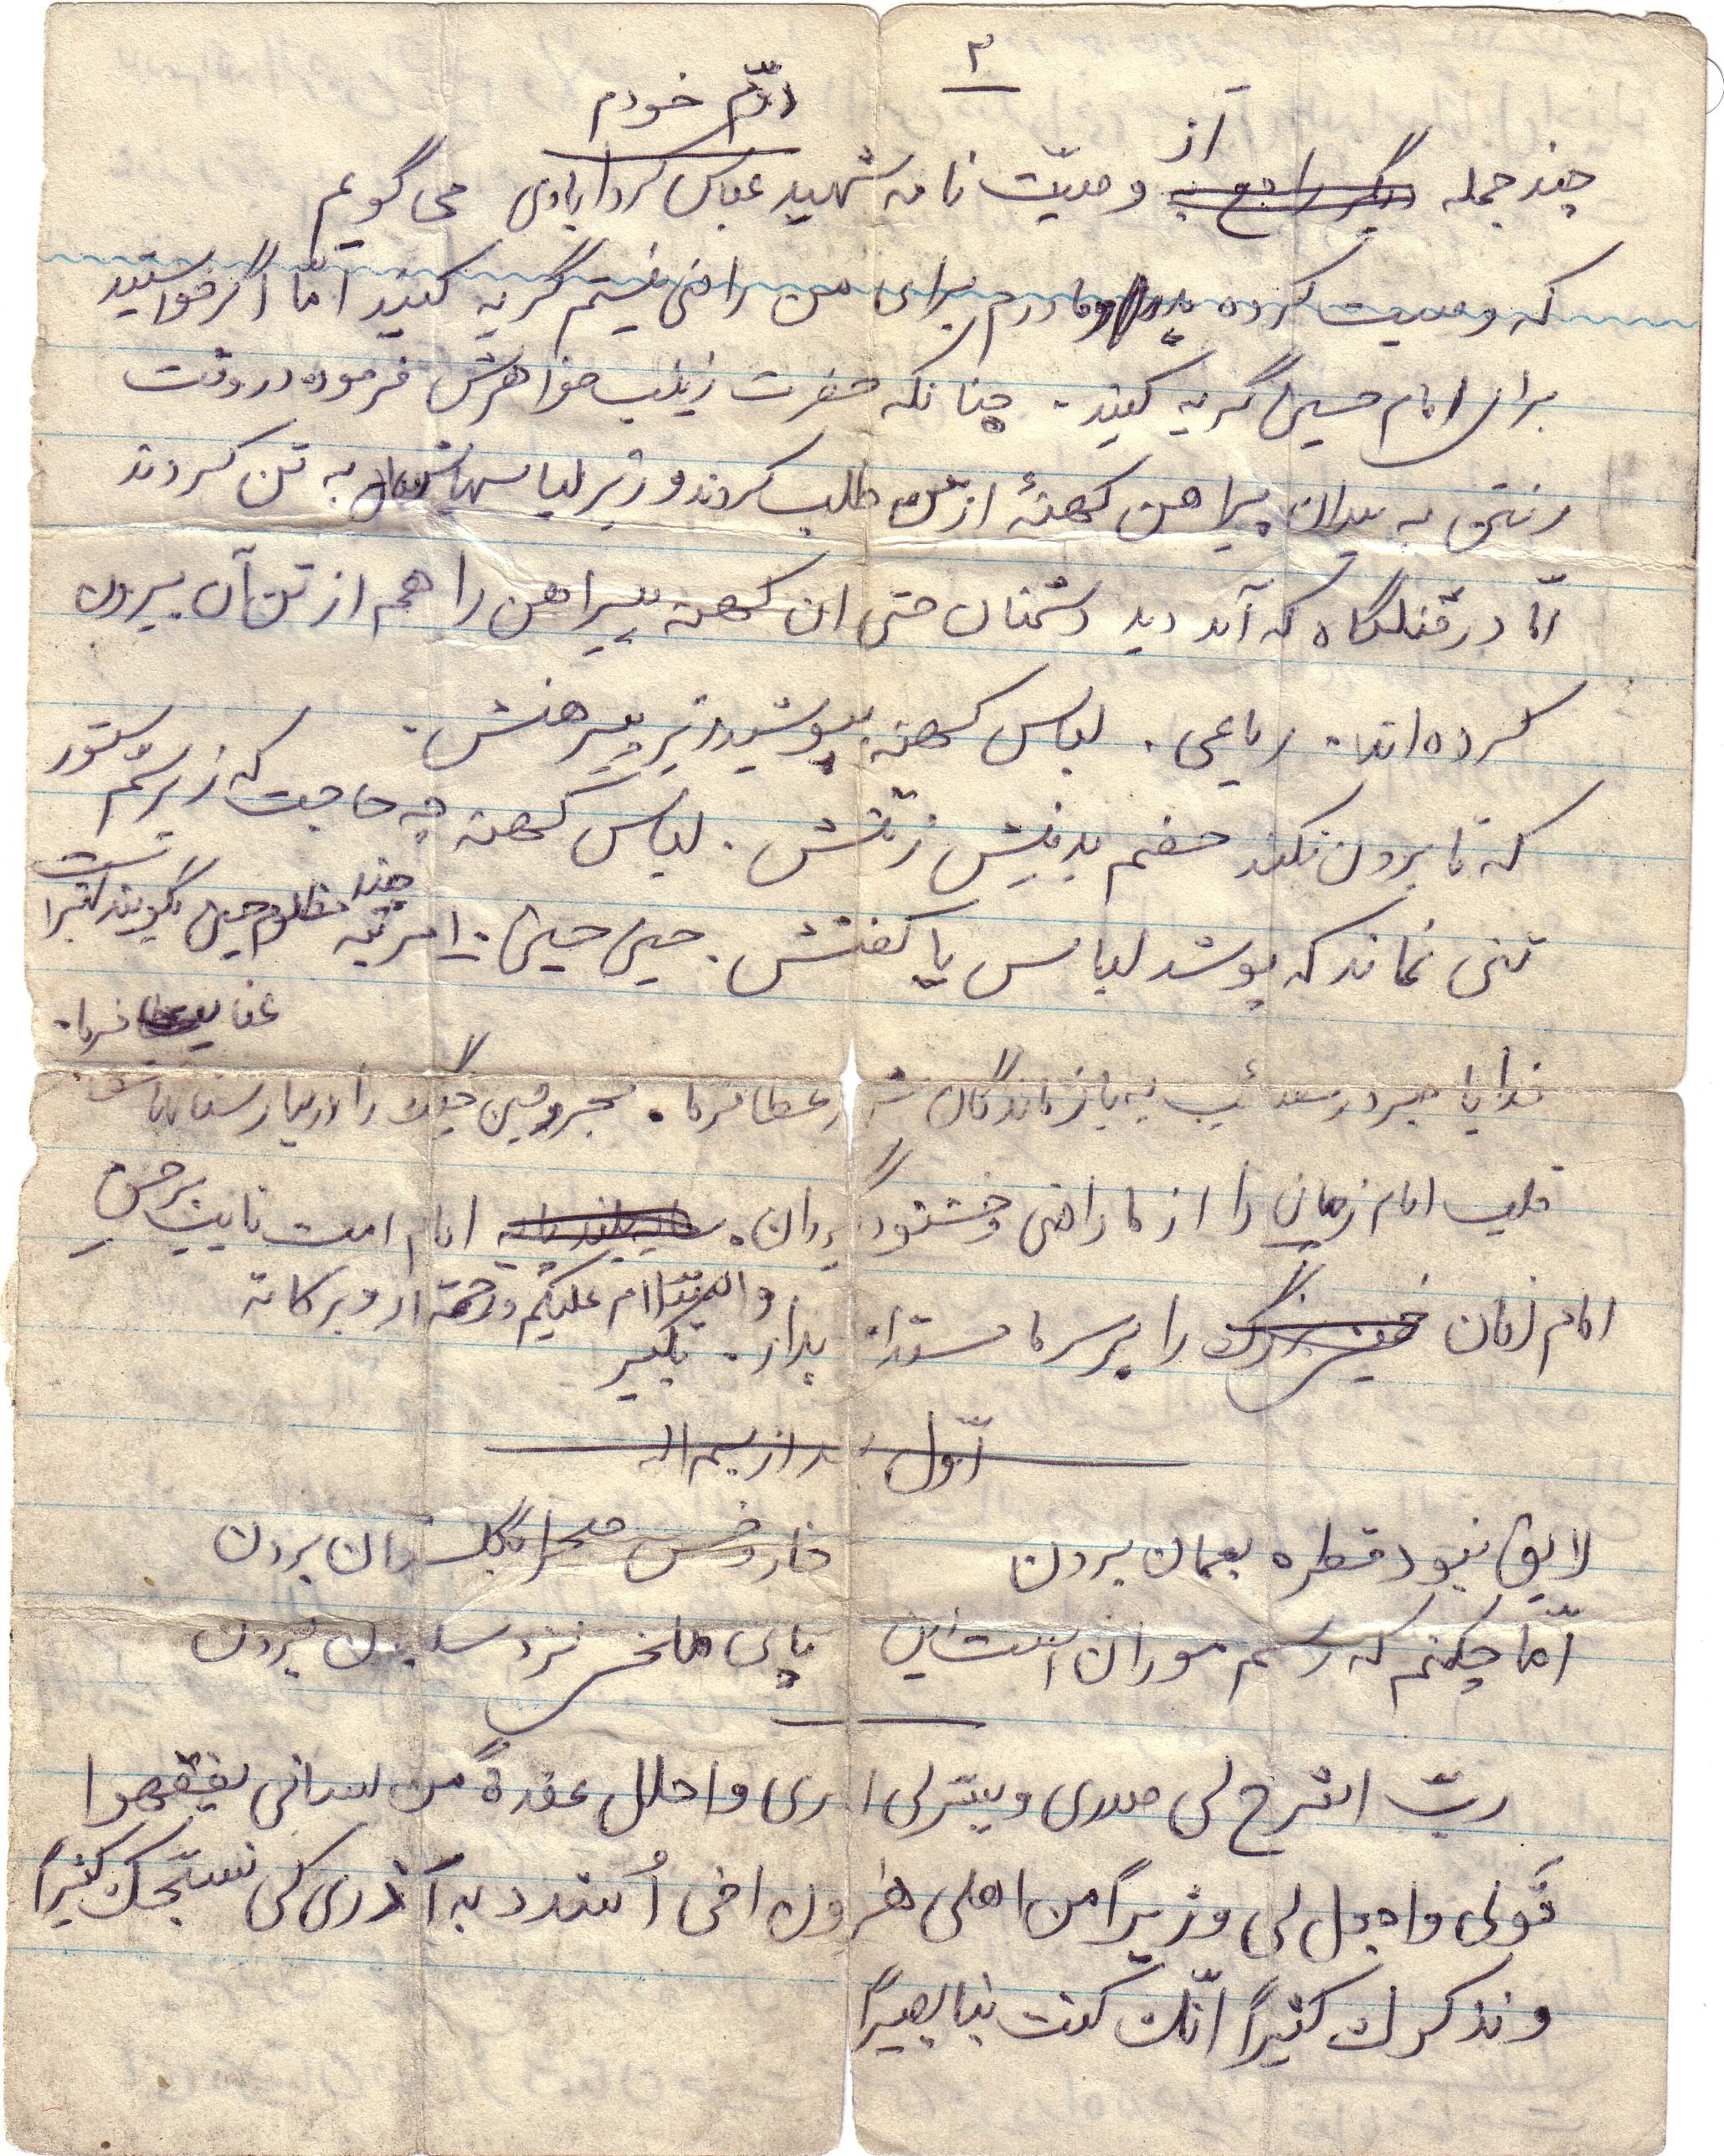 ۳
دوّم خودم
از
چند جمله دیگر راجع به وصیّت نامه شهید عباس کردآبادی می گویم
که وصیت کرده پدر و مادرم برای من راضی نیستم گریه کنید امّا اگر خواستید
برای امام حسین گریه کنید. چنانکه حضرت زینب خواهرش فرموده در وقت
رفتن به میدان پیراهن کهنهٔ از من طلب کردند و زیر لباسهایشان به تن کردند
امّا در قتلگاه که آمد دید دشمنان حتی این کهنه پیراهن را هم از تن آن بیرون
کرده‌اند. رباعی. لباس کهنه بپوشید زیر پیرهنش.
که تا برون نکند خصم بدمنش ز تنش. لباس کهنه چه حاجت که زیر سمّ ستور
تنی نماند که پوشد لباس یا کفنش. حسین حسین. ۱۰ مرتبه مظلوم حسین بگویند
چند
عنایت فرما.
خدایا صبر در مصائب به بازماندگان عطا فرما. مجروحین جنگ را در بیمارستانها شفا
قلب امام زمان را از ما راضی و خشنود بگردان. سایه بلند پایه امام امت نایب برحق
امام زمان خمینی بزرگ را بر سر ما مستدام بدار. تکبیر
والسّلام علیکم و رحمة اله و برکاته
اوّل بعد از بسم اله
لایق نبود قطره بعمان بردن خار و خس صحرا بگلستان بردن
امّا چکنم که رسم موران است این پای ملخی نزد سلیمان بردن
ربّ اشرح لی صدری و یسّر لی امری واحلل عقدةً من لسانی یفقهوا
قَولی واجعل لی وزیراً من اهلی هٰرون اخی اُشدد به اَزری کی نسبّحک کثیراً
و نذکرک کثیراً انّک کنت بنا بصیراً